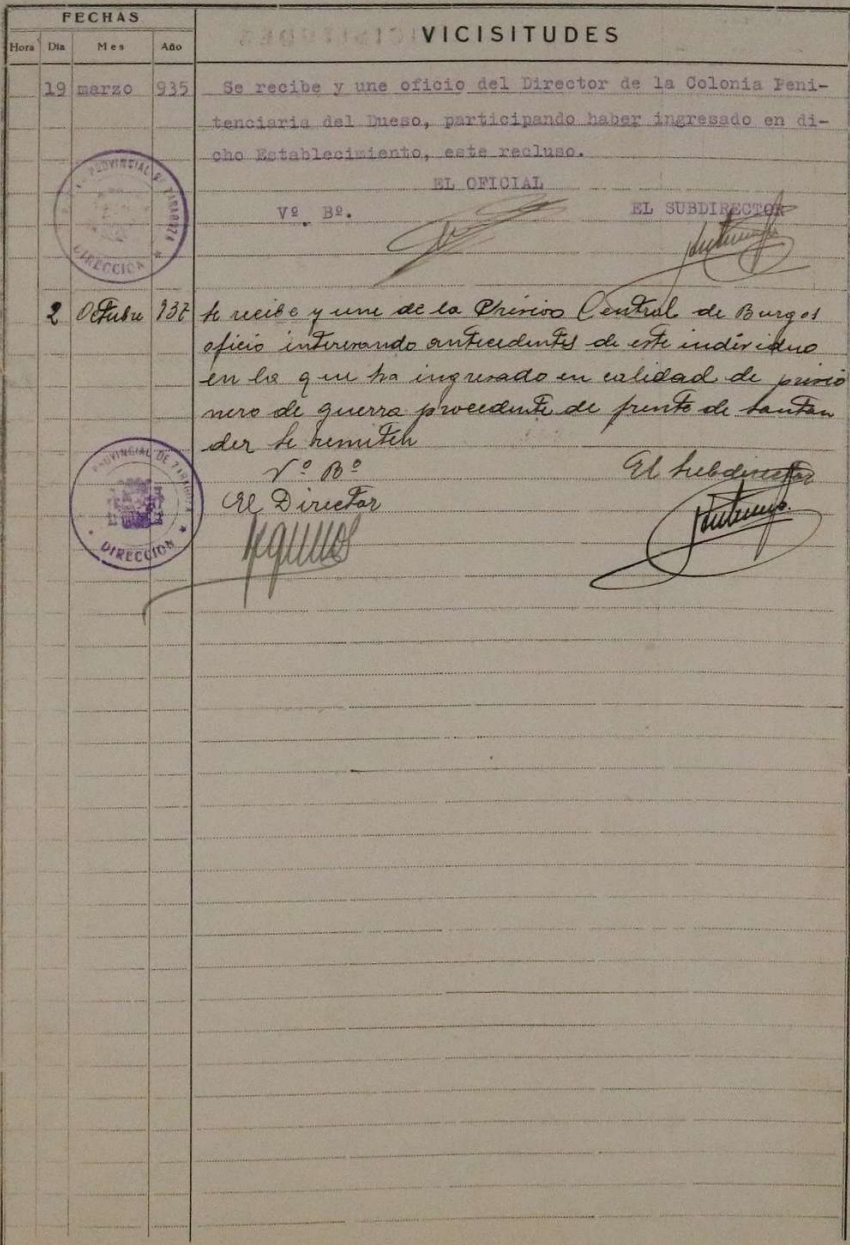 FECHAS
VICISITUDES
Hora Día Mes Año
19 marzo 935 Se recibe y une oficio del Director de la Colonia Peni-
tenciaria del Dueso, participando haber ingresado en di-
cho Establecimiento, este recluso.
EL OFICIAL
Vº. Bº. EL SUBDIRECTOR
PROVINCIAL DE ZARAGOZA
DIRECCION
2 Octubre 937 Se recibe y une de la Prision Central de Burgos
oficio interesando antecedentes de este individuo
en la que ha ingresado en calidad de prisio
nero de guerra procedente de frente de Santan
der Se remiten
Vº Bº El Subdirector
El Director
PROVINCIAL DE ZARAGOZA
DIRECCION